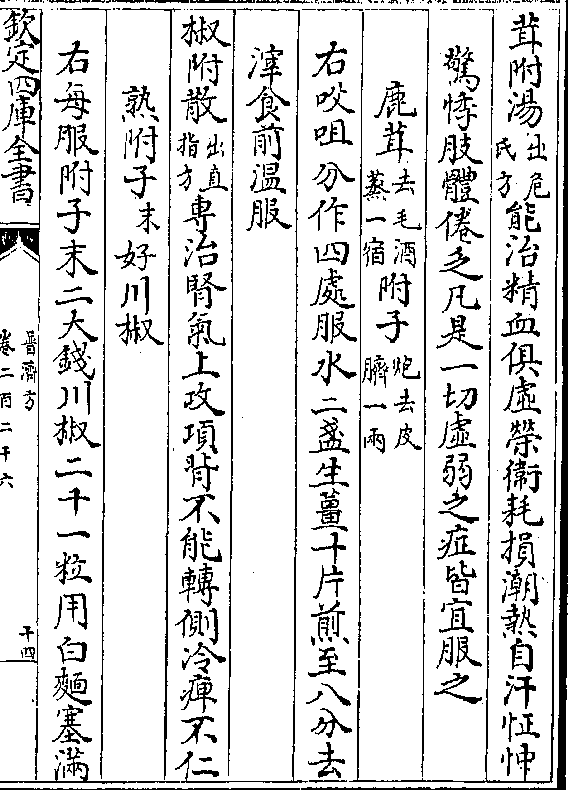 茸附湯出危氏方能治精血俱虛榮衛耗損潮熱自汗怔忡
驚悸肢體倦乏凡是一切虛弱之症皆宜服之
鹿茸去毛酒蒸一宿附子炮去皮臍一兩
右㕮咀分作四處服水二盞生薑十片煎至八分去
滓食前溫服
椒附散出直指方專治腎氣上攻項背不能轉側冷痺不仁
熟附子末好川椒
右每服附子末二大錢川椒二十一粒用白麵塞滿
欽定四庫全書
普濟方
卷二百二十六
十四